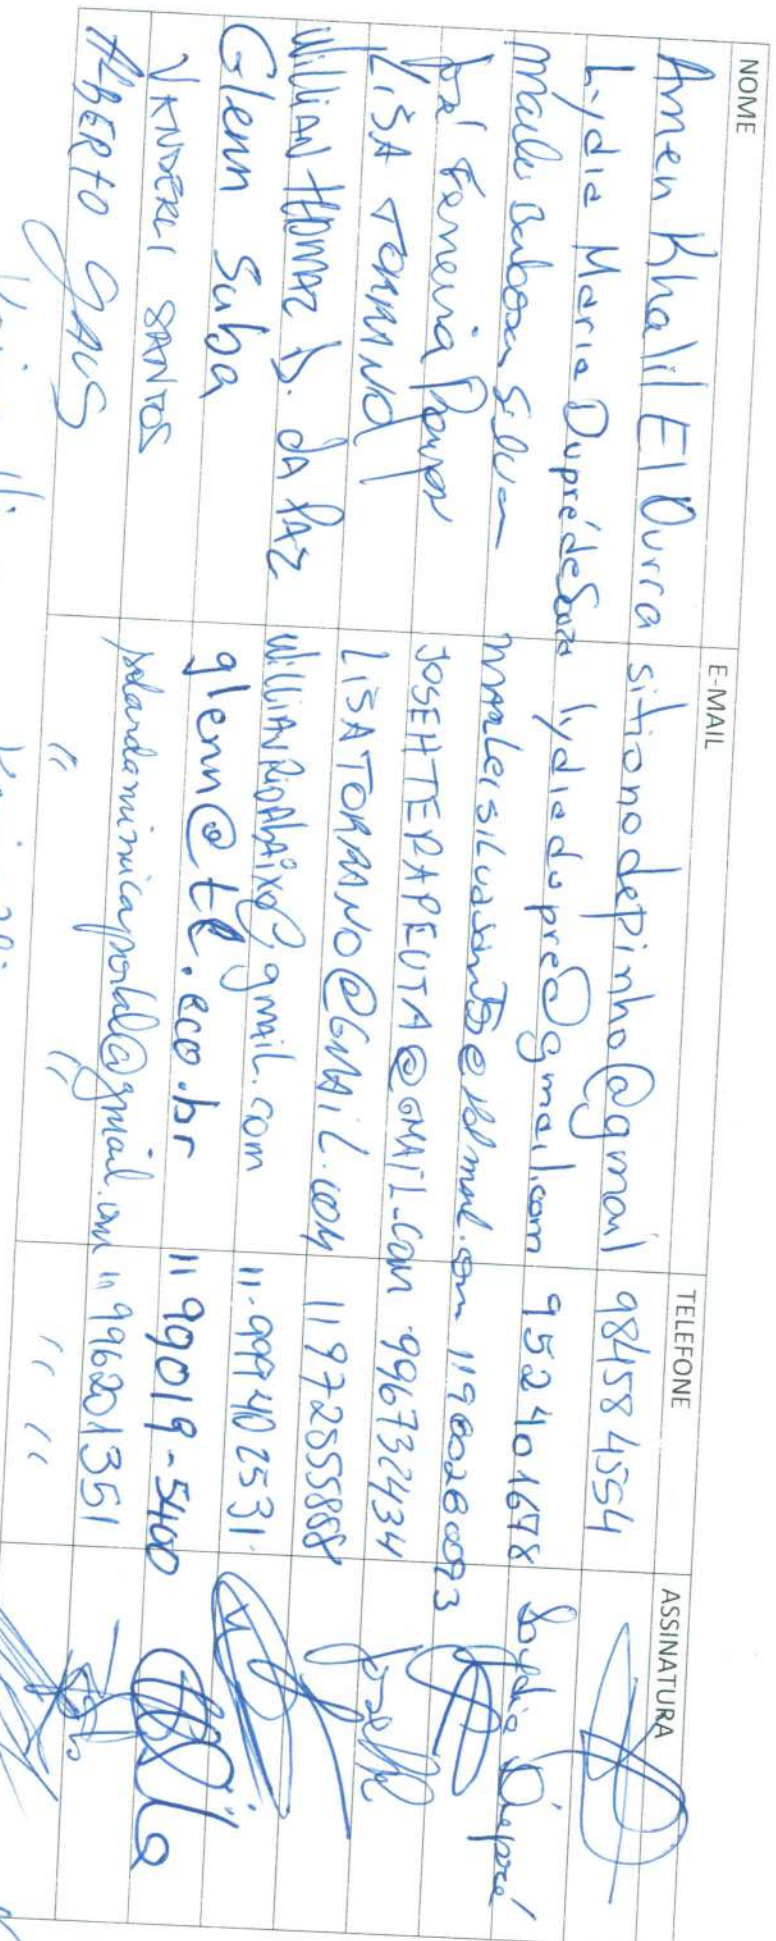 NOME E-MAIL TELEFONE ASSINATURA
Amen Khalil El Ourra sitionodepinho@gmail 98458 4554
Lydia Maria Dupré de Souza lydiadupre@gmail.com 952401678 Lydia Dupré
Barbosa Silva
José Ferreira JOSEHTERAPEUTA@GMAIL.COM 996732434
LISA TORMANO LISATORMANO@GMAIL.COM 11972555888
WILLIAN THOMAZ D. DA PAZ WILLIANRIOABAIXO@gmail.com 11-999402531
Glenn Suba glenn@tl.eco.br 1199019-5400
VANDERLEI SANTOS 11 996201351
ALBERTO " " " "